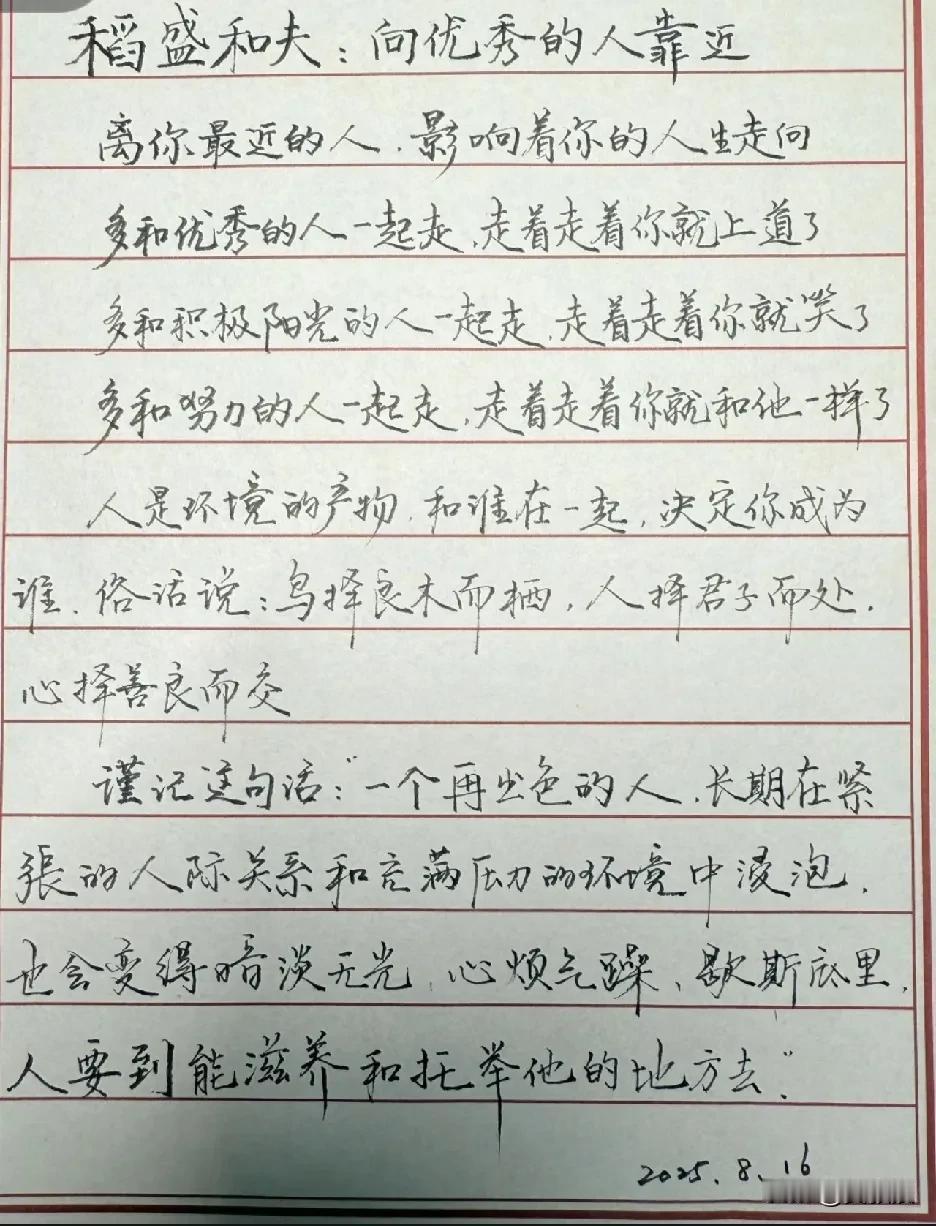 稻盛和夫：向优秀的人靠近
离你最近的人，影响着你的人生走向
多和优秀的人一起走，走着走着你就上道了
多和积极阳光的人一起走，走着走着你就笑了
多和努力的人一起走，走着走着你就和他一样了
人是环境的产物，和谁在一起，决定你成为
谁，俗话说：鸟择良木而栖，人择君子而处，
心择善良而交
谨记这句话："一个再出色的人，长期在紧
張的人际关系和充满压力的环境中浸泡，
也会变得暗淡无光，心烦气躁、歇斯底里，
人要到能滋养和托举他的地方去"
2025.8.16